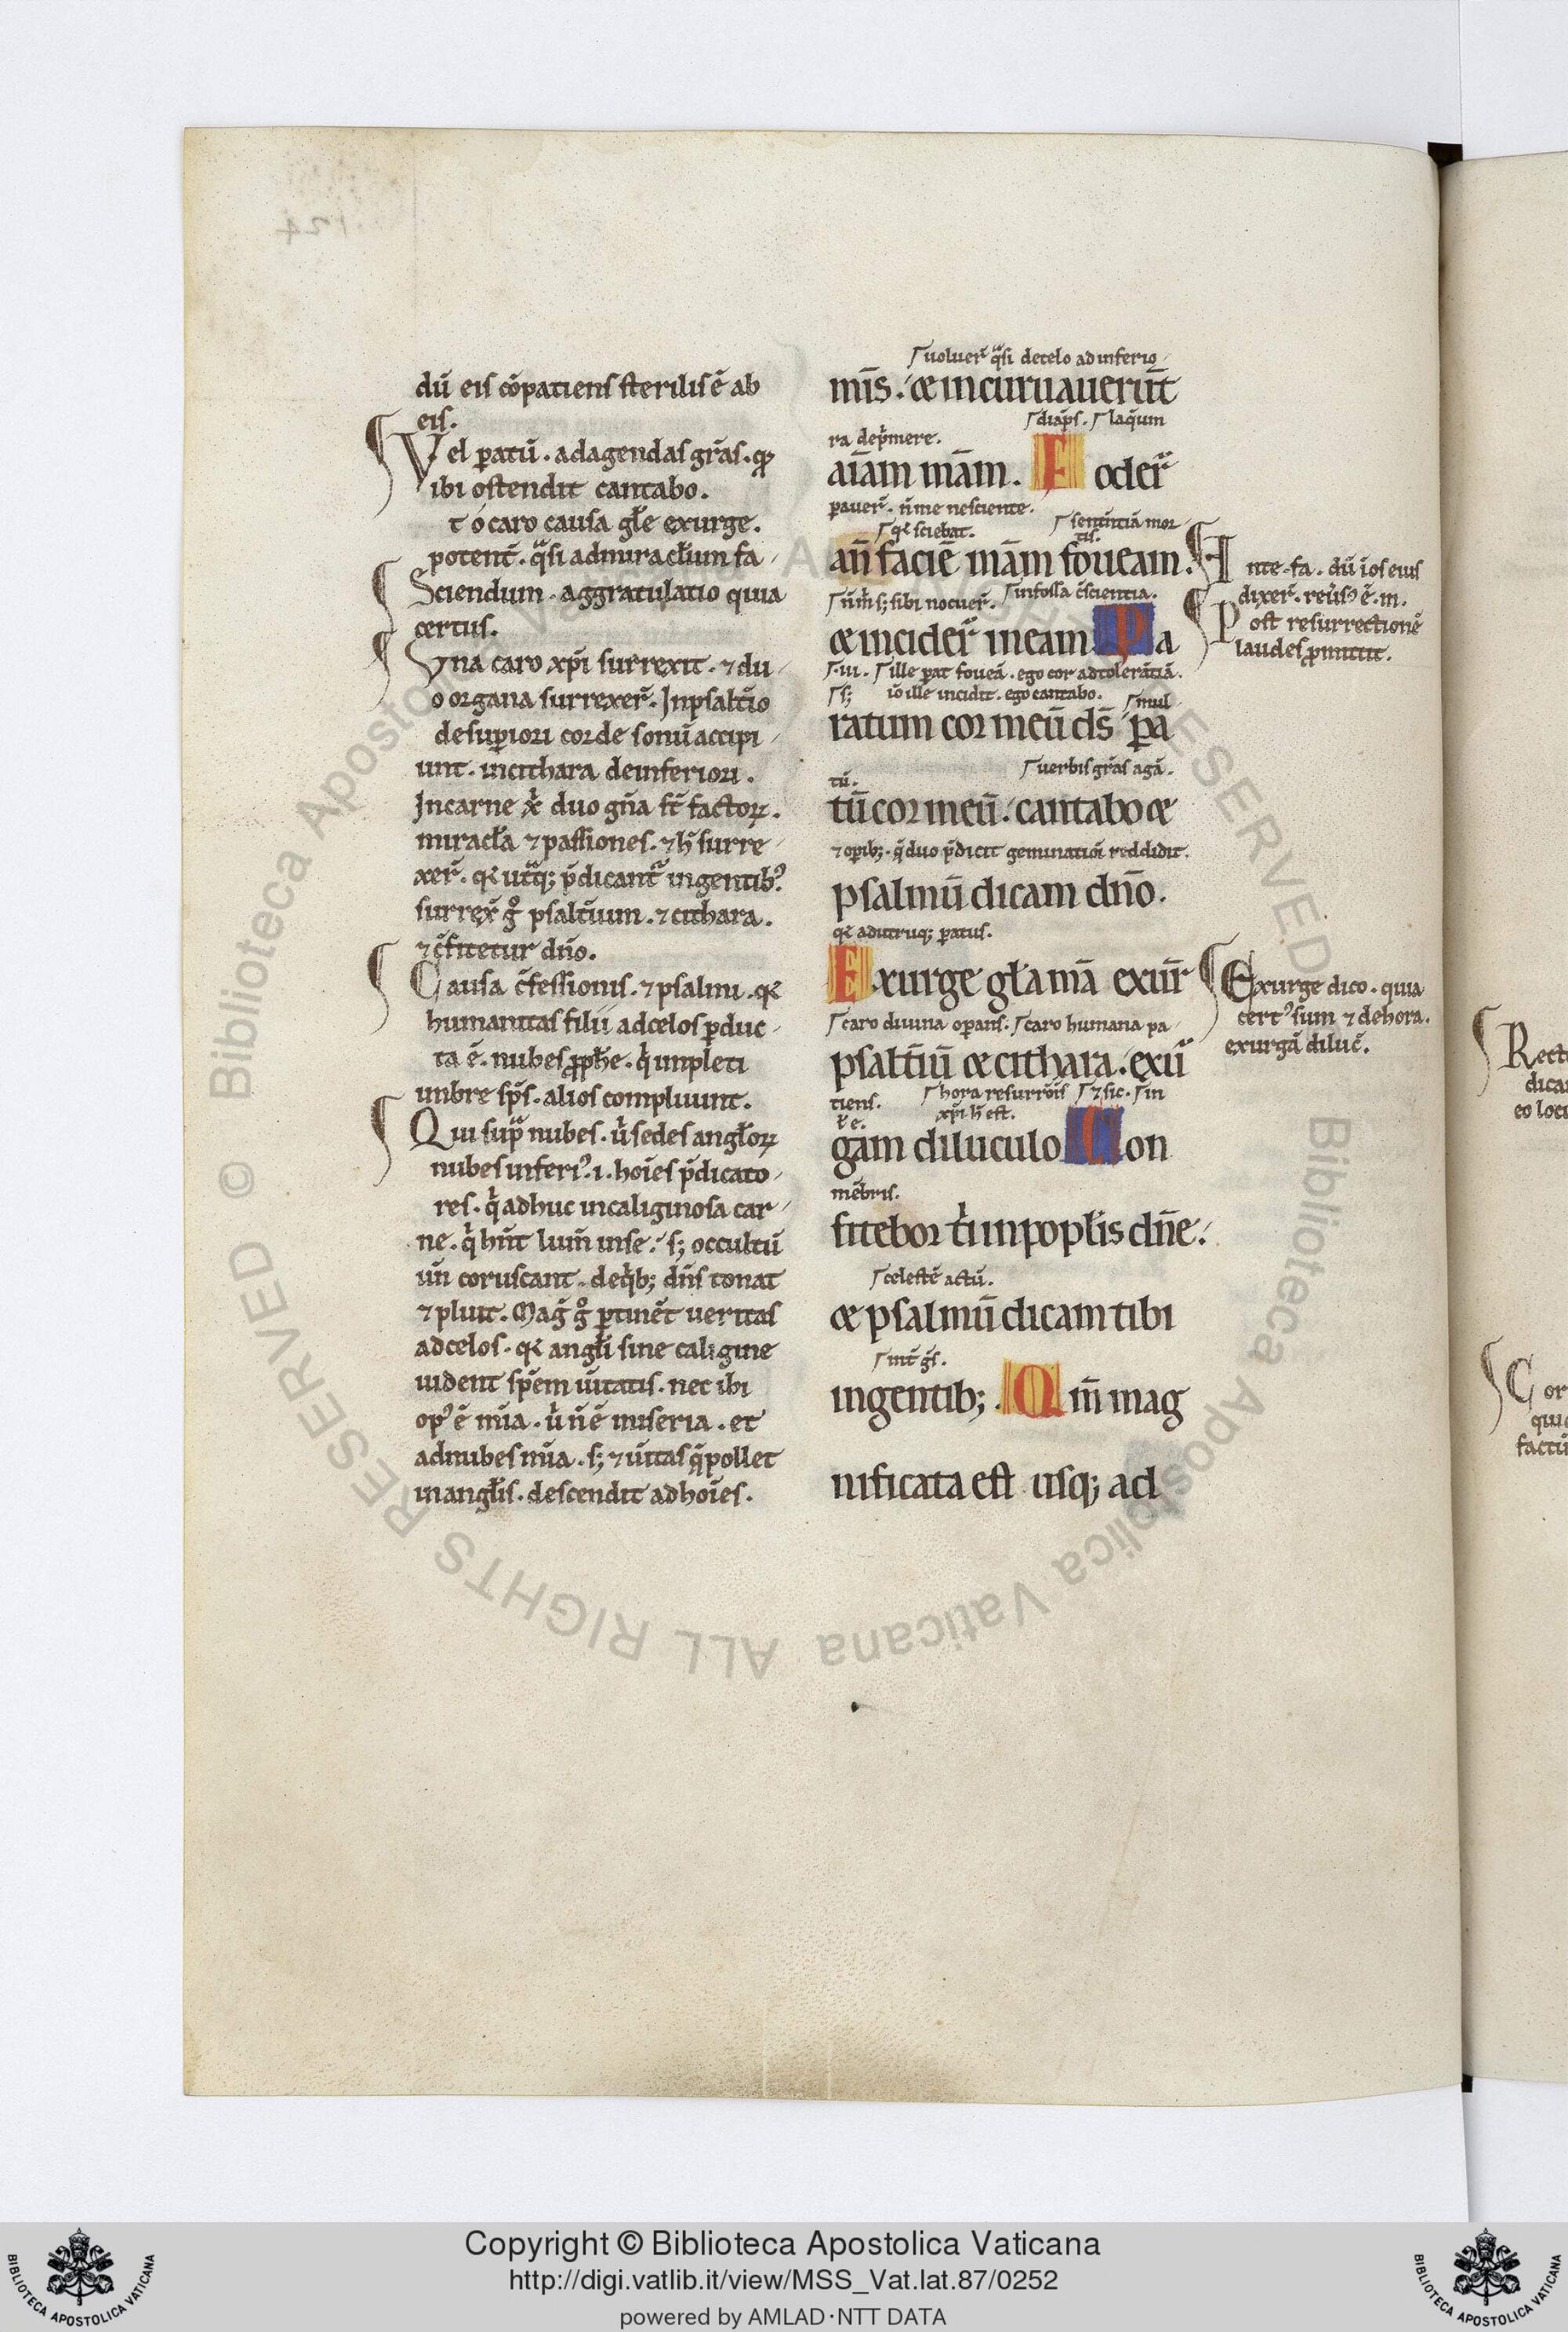 dū eis cōpatiens sterilis ē ab
eis.
Vel paratū. ad agendas gr̄as. qꝫ
ibi ostendit cantabo.
t o caro causa gl̄e exurge.
potent̄. q̄si ad miracl̄um fa
Sciendum. aggratulatio quia
certus.
Vna caro xp̄i surrexit. ⁊ du
o organa surrexer̄. In psalt̄io
de suꝑiori corde sonū accipi
unt. in cithara de inferiori.
In carne x̄ duo gn̄a st̄ factoꝝ.
miracl̄a ⁊ passiones. ⁊ h̄ surre
xer̄. qꝛ utraqꝫ p̄dicant̄ in gentibꝰ
surrex̄ gͦ psalt̄ium. ⁊ cithara.
⁊ c̄fitetur dn̄o.
Causa c̄fessionis. ⁊ psalmi. qꝛ
humanitas filii ad celos ꝑduc
ta ē. nubes ꝓph̄e. qi impleti
imbre sp̄s. alios compluunt.
Qui supra nubes. ū sedes angl̄oꝝ
nubes inferiꝰ. i. hoīes p̄dicato
res. qi adhuc in caliginosa car
ne. qi hn̄t lum̄ in se. sꝫ occultū
un̄ coruscant. de qibꝫ dn̄s tonat
⁊ pluit. Maḡ gͦ ꝑtinet̄ veritas
ad celos. qꝛ angl̄i sine caligine
uident sp̄em ūitatis. nec ibi
opꝰ ē mīa. ū n̄ ē miseria. et
ad nubes mīa. sꝫ ⁊ ūitas q̄ pollet
in angl̄is. descendit ad hoīes.
uoluer̄ q̄si de celo ad inferio
mīs. ⁊ incuruauerūt
diaps. laq̄um
ra dep̄mere.
aīam mām. Foder̄
ꝑauer̄. n̄ me nesciente.
qꝛ sciebat. sententiā mor
tis.
an̄ faciē mām foueam.
n̄ m̄ sꝫ sibi nocuer̄. in fossa c̄scientia.
⁊ incider̄ in eam Pa
.iii. ille parat foueā. ego cor ad tolerātiā.
sꝫ iō ille incidit. ego cantabo. mul
ratum cor meū ds̄ pa
uerbis gr̄as agā.
tū.
tū cor meū. cantabo ⁊
⁊ opibꝫ. q̄ duo p̄dicit geminatiōi reddidit.
psalmū dicam dn̄o.
qꝛ ad utruqꝫ paratus.
Exurge gl̄a mā exur̄
caro diuina operans. caro humana pa
psalt̄iū ⁊ cithara. exū
hora resurrōis ⁊ sic. in
tiens. xp̄i h̄ est.
gam diluculo Con
mēbris.
fitebor ti in popl̄is dn̄e.
celestē actū.
⁊ psalmū dicam tibi
in gentibꝫ. Qm̄ mag
nificata est usqꝫ ad
Ante. fa. dū īos eius
dixer̄. reūsꝰ ē. m.
Post resurrectionē
laudes ꝓmittit.
Exurge dico. quia
certꝰ sum ⁊ de hora.
exurgā diluc̄.
Copyright © Biblioteca Apostolica Vaticana
http://digi.vatlib.it/view/MSS_Vat.lat.87/0252
powered by AMLAD·NTT DATA
BIBLIOTECA APOSTOLICA VATICANA
BIBLIOTECA APOSTOLICA VATICANA
Biblioteca Apostolica Vaticana ALL RIGHTS RESERVED ©